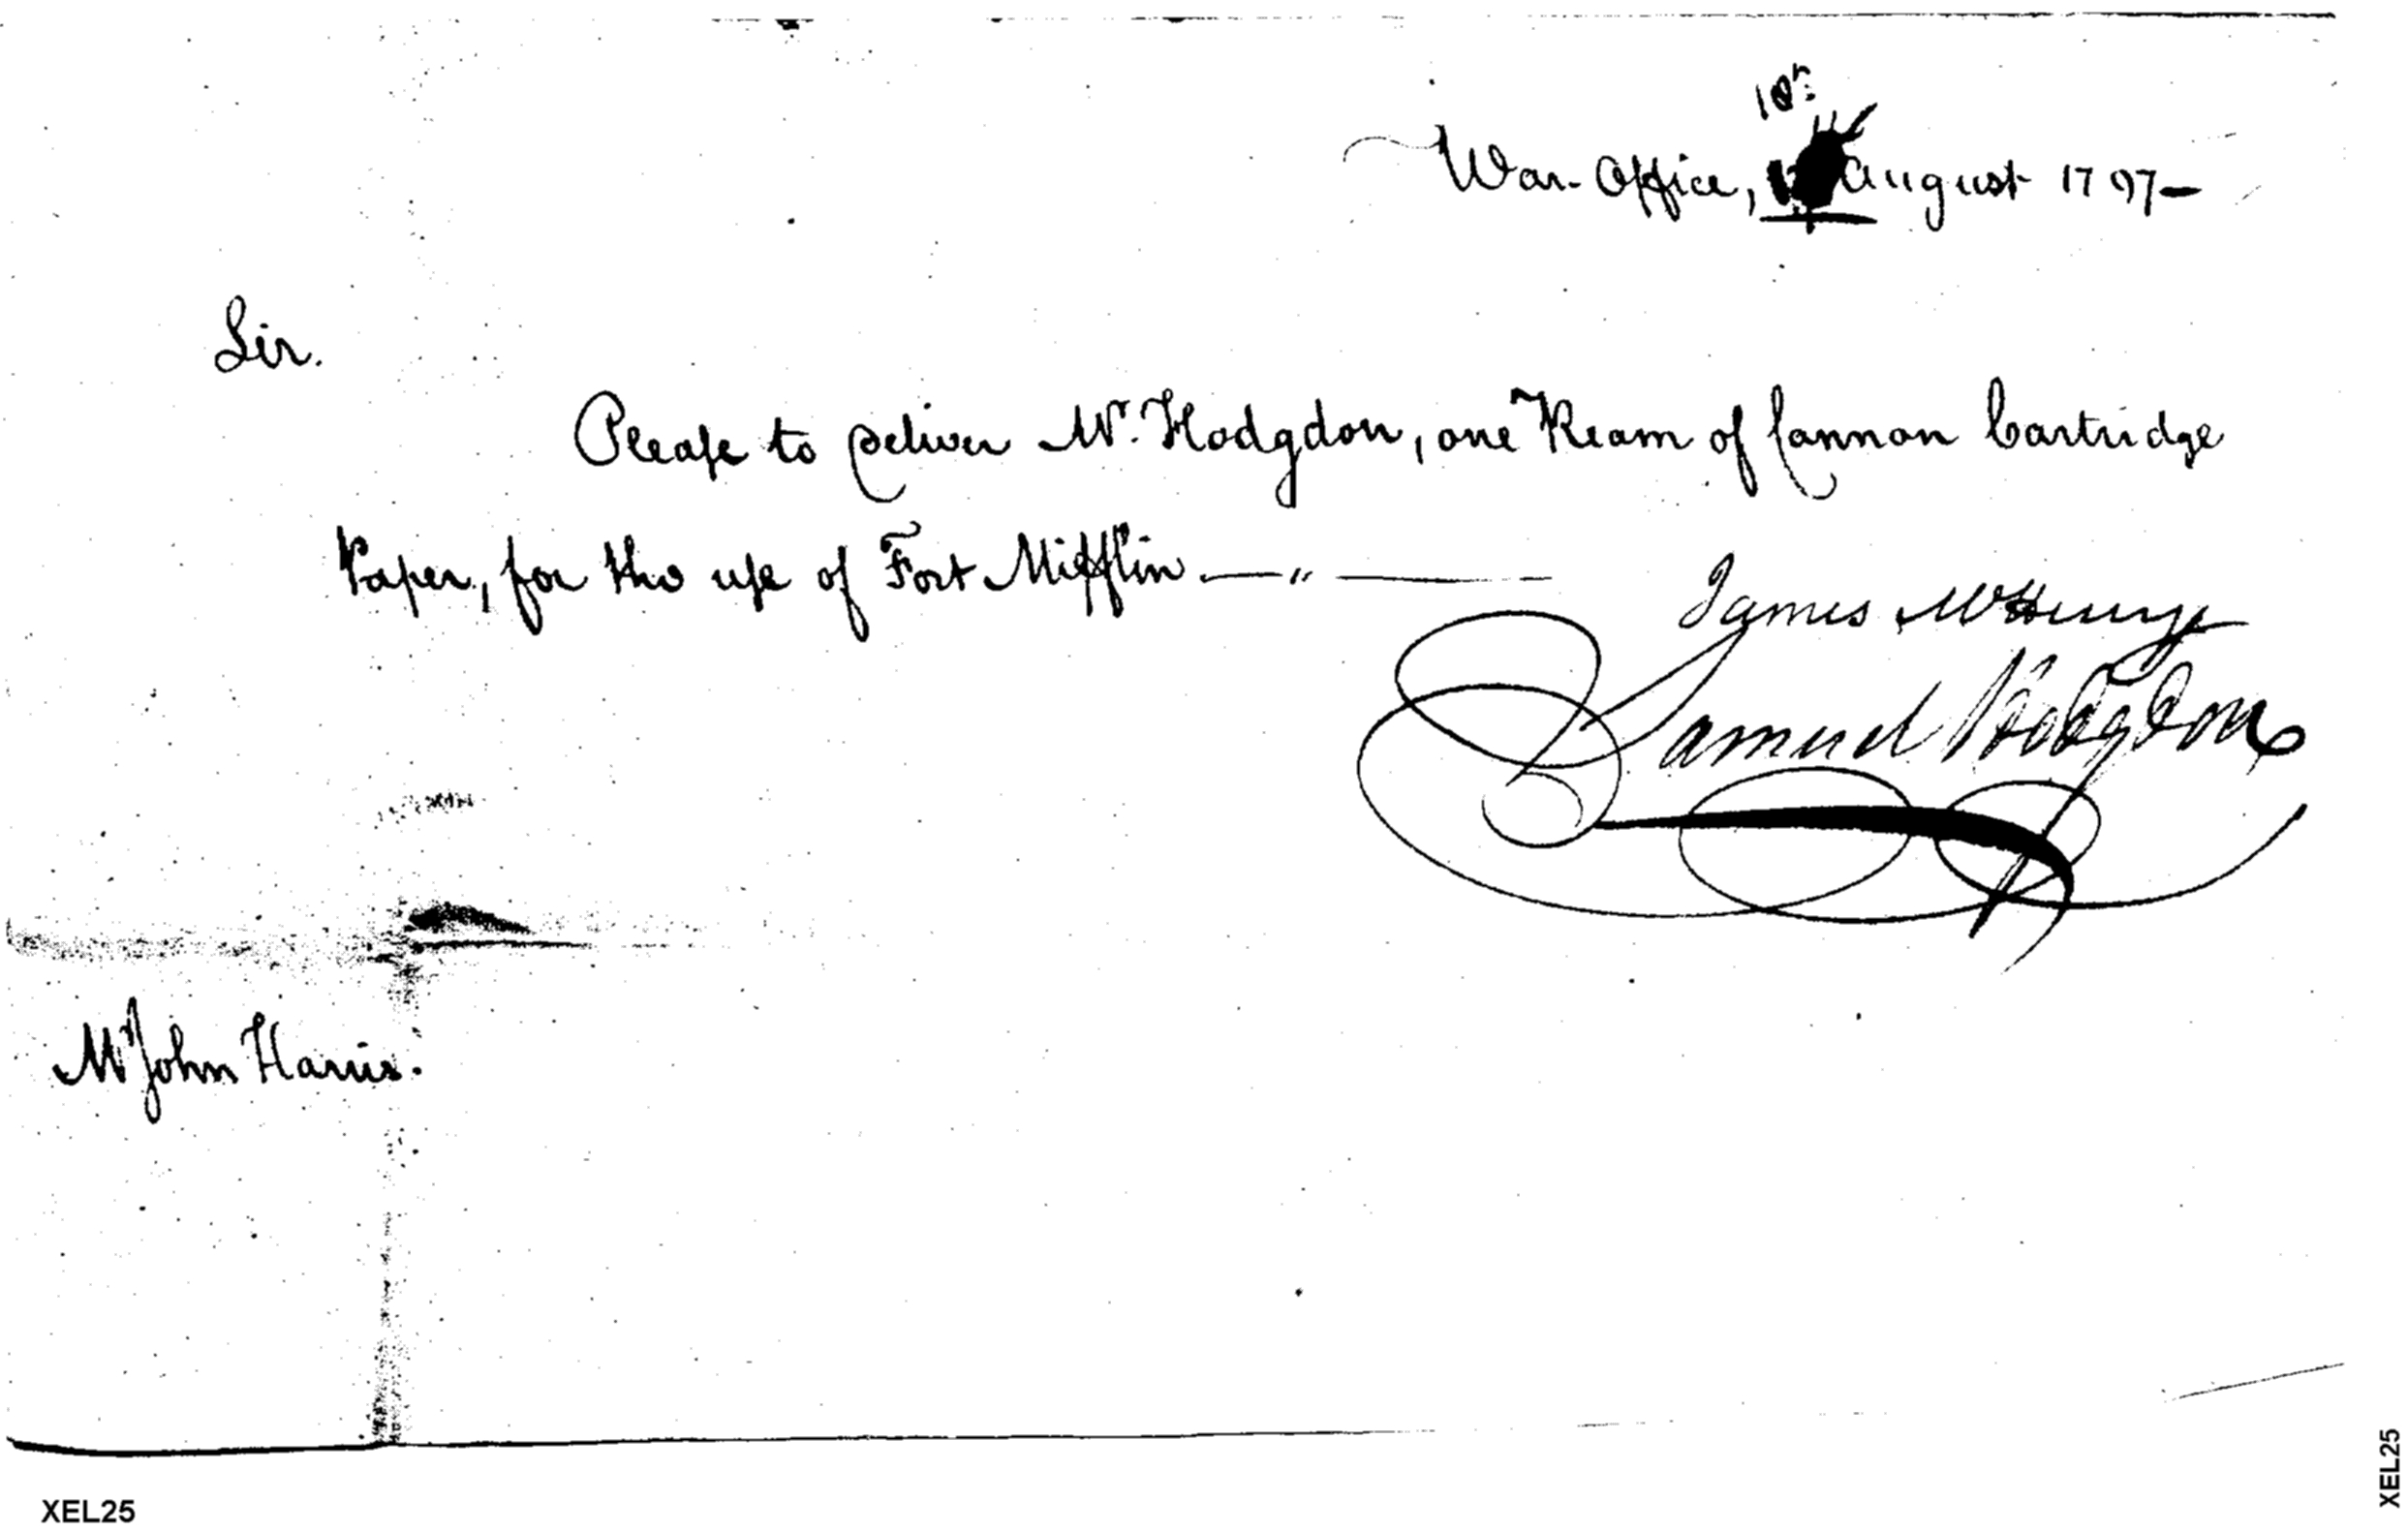 18th
War Office, August 1797—
Sir.
Please to deliver Mr. Hodgdon, one Ream of Cannon Cartridge
Paper, for the use of Fort Mifflin —"—
James McHenry
Samuel Hodgdon
Mr John Harris.
XEL25
XEL25